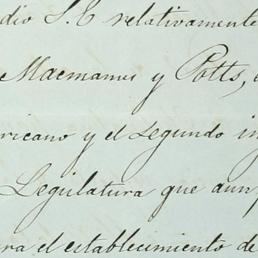 dio S. E relativamente
Macmanus y Potts,
ricano y el segundo in
Legislatura que aun
ra el establecimiento de